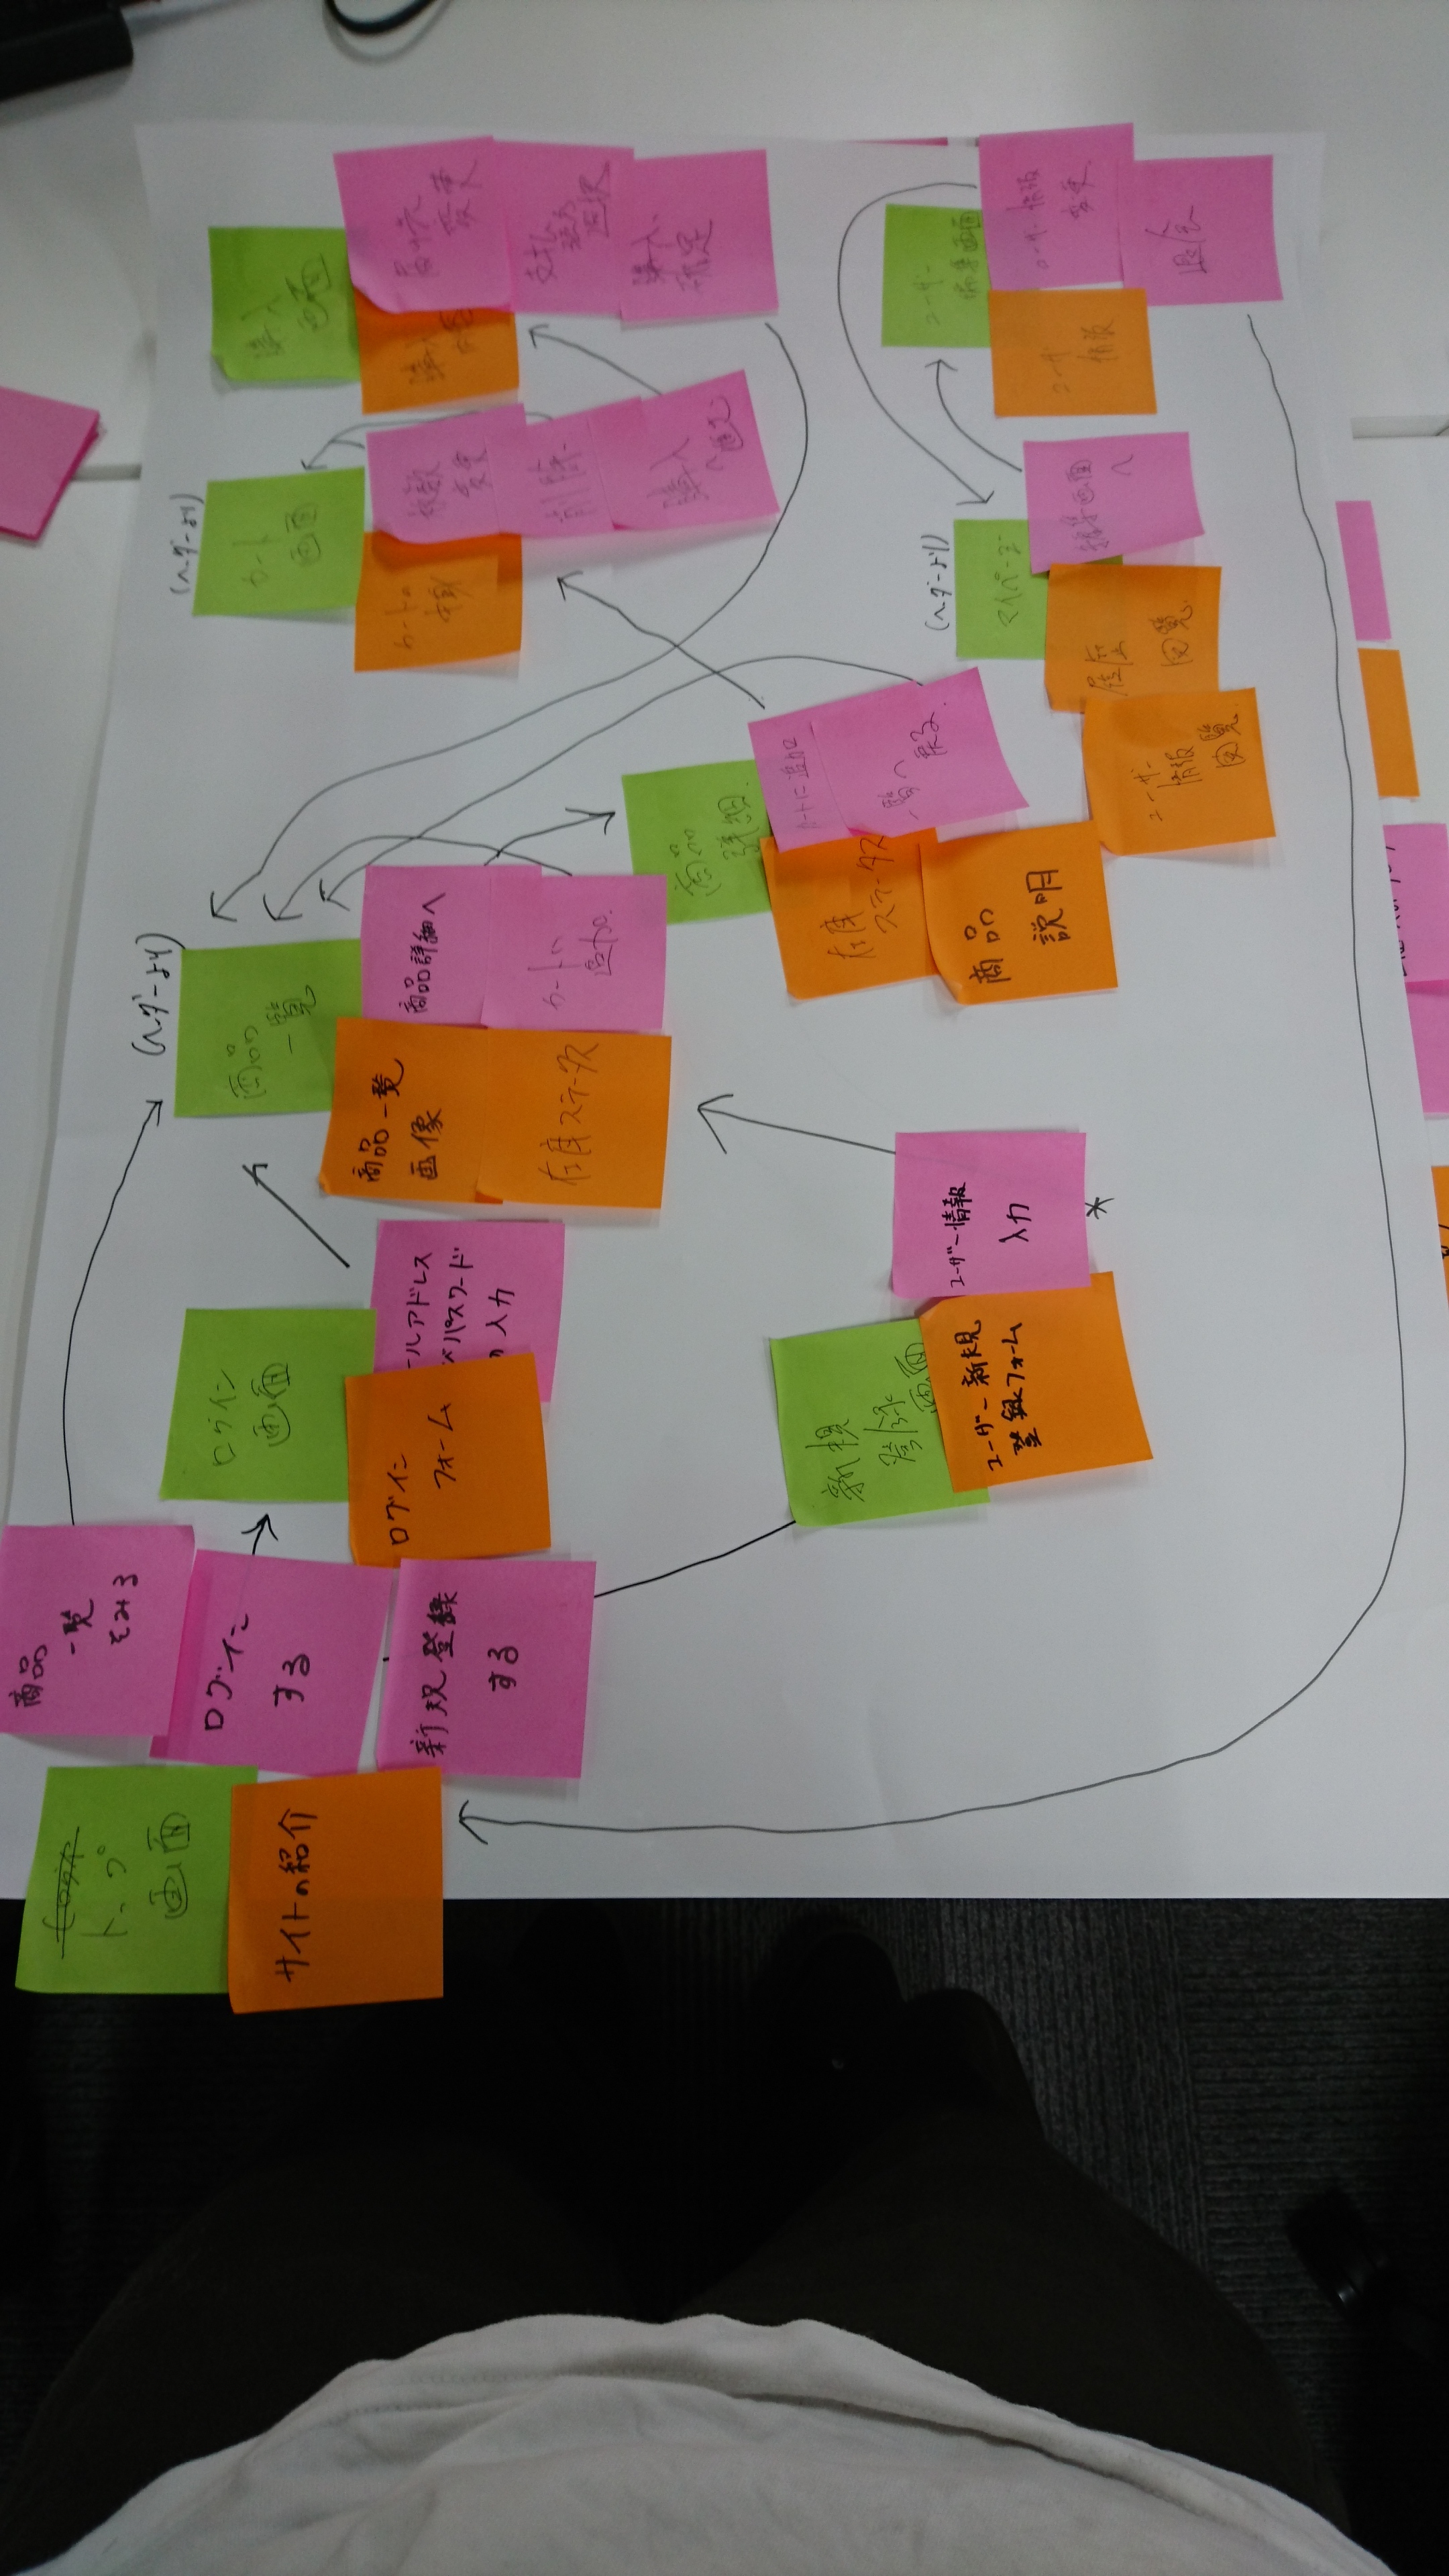 トップ
画面
サイトの紹介
商品
一覧
をみる
ログイン
する
新規登録
する
ログイン
画面
ログイン
フォーム
ールアドレス
パスワード
入力
新規
登録
画面
ユーザー新規
登録フォーム
ユーザー情報
入力
*
(ヘッダーより)
商品
一覧
商品一覧
画像
在庫ステータス
商品詳細へ
カートに
追加
商品
詳細
在庫
ステータス
商品
説明
カートに追加
一覧へ
戻る
(ヘッダーより)
カート
画面
カートの
枚数
変更
削除
購入
へ進む
購入
画面
購入
変更
支払
選択
購入
確定
(ヘッダーより)
マイページ
履歴
閲覧
ユーザー
情報
閲覧
編集画面
へ
ユーザー
編集画面
ユーザ
情報
ユーザ情報
変更
退会